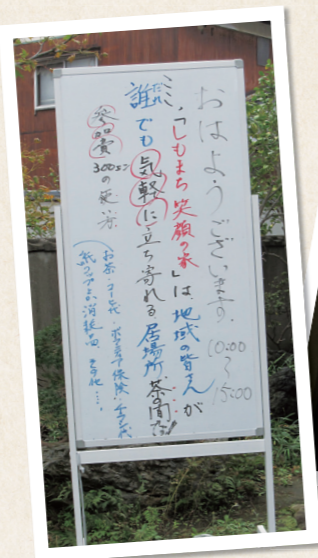 おはようございます。
10:00
〜
15:00
ここ、「しもまち笑顔の家」は、地域の皆さんが
誰でも気軽に立ち寄れる居場所、茶の間です!!
だれ
参加費
300エン
お茶・コーヒー代・ボランティア保険・チラシ代
紙コップなど消耗品、その他……